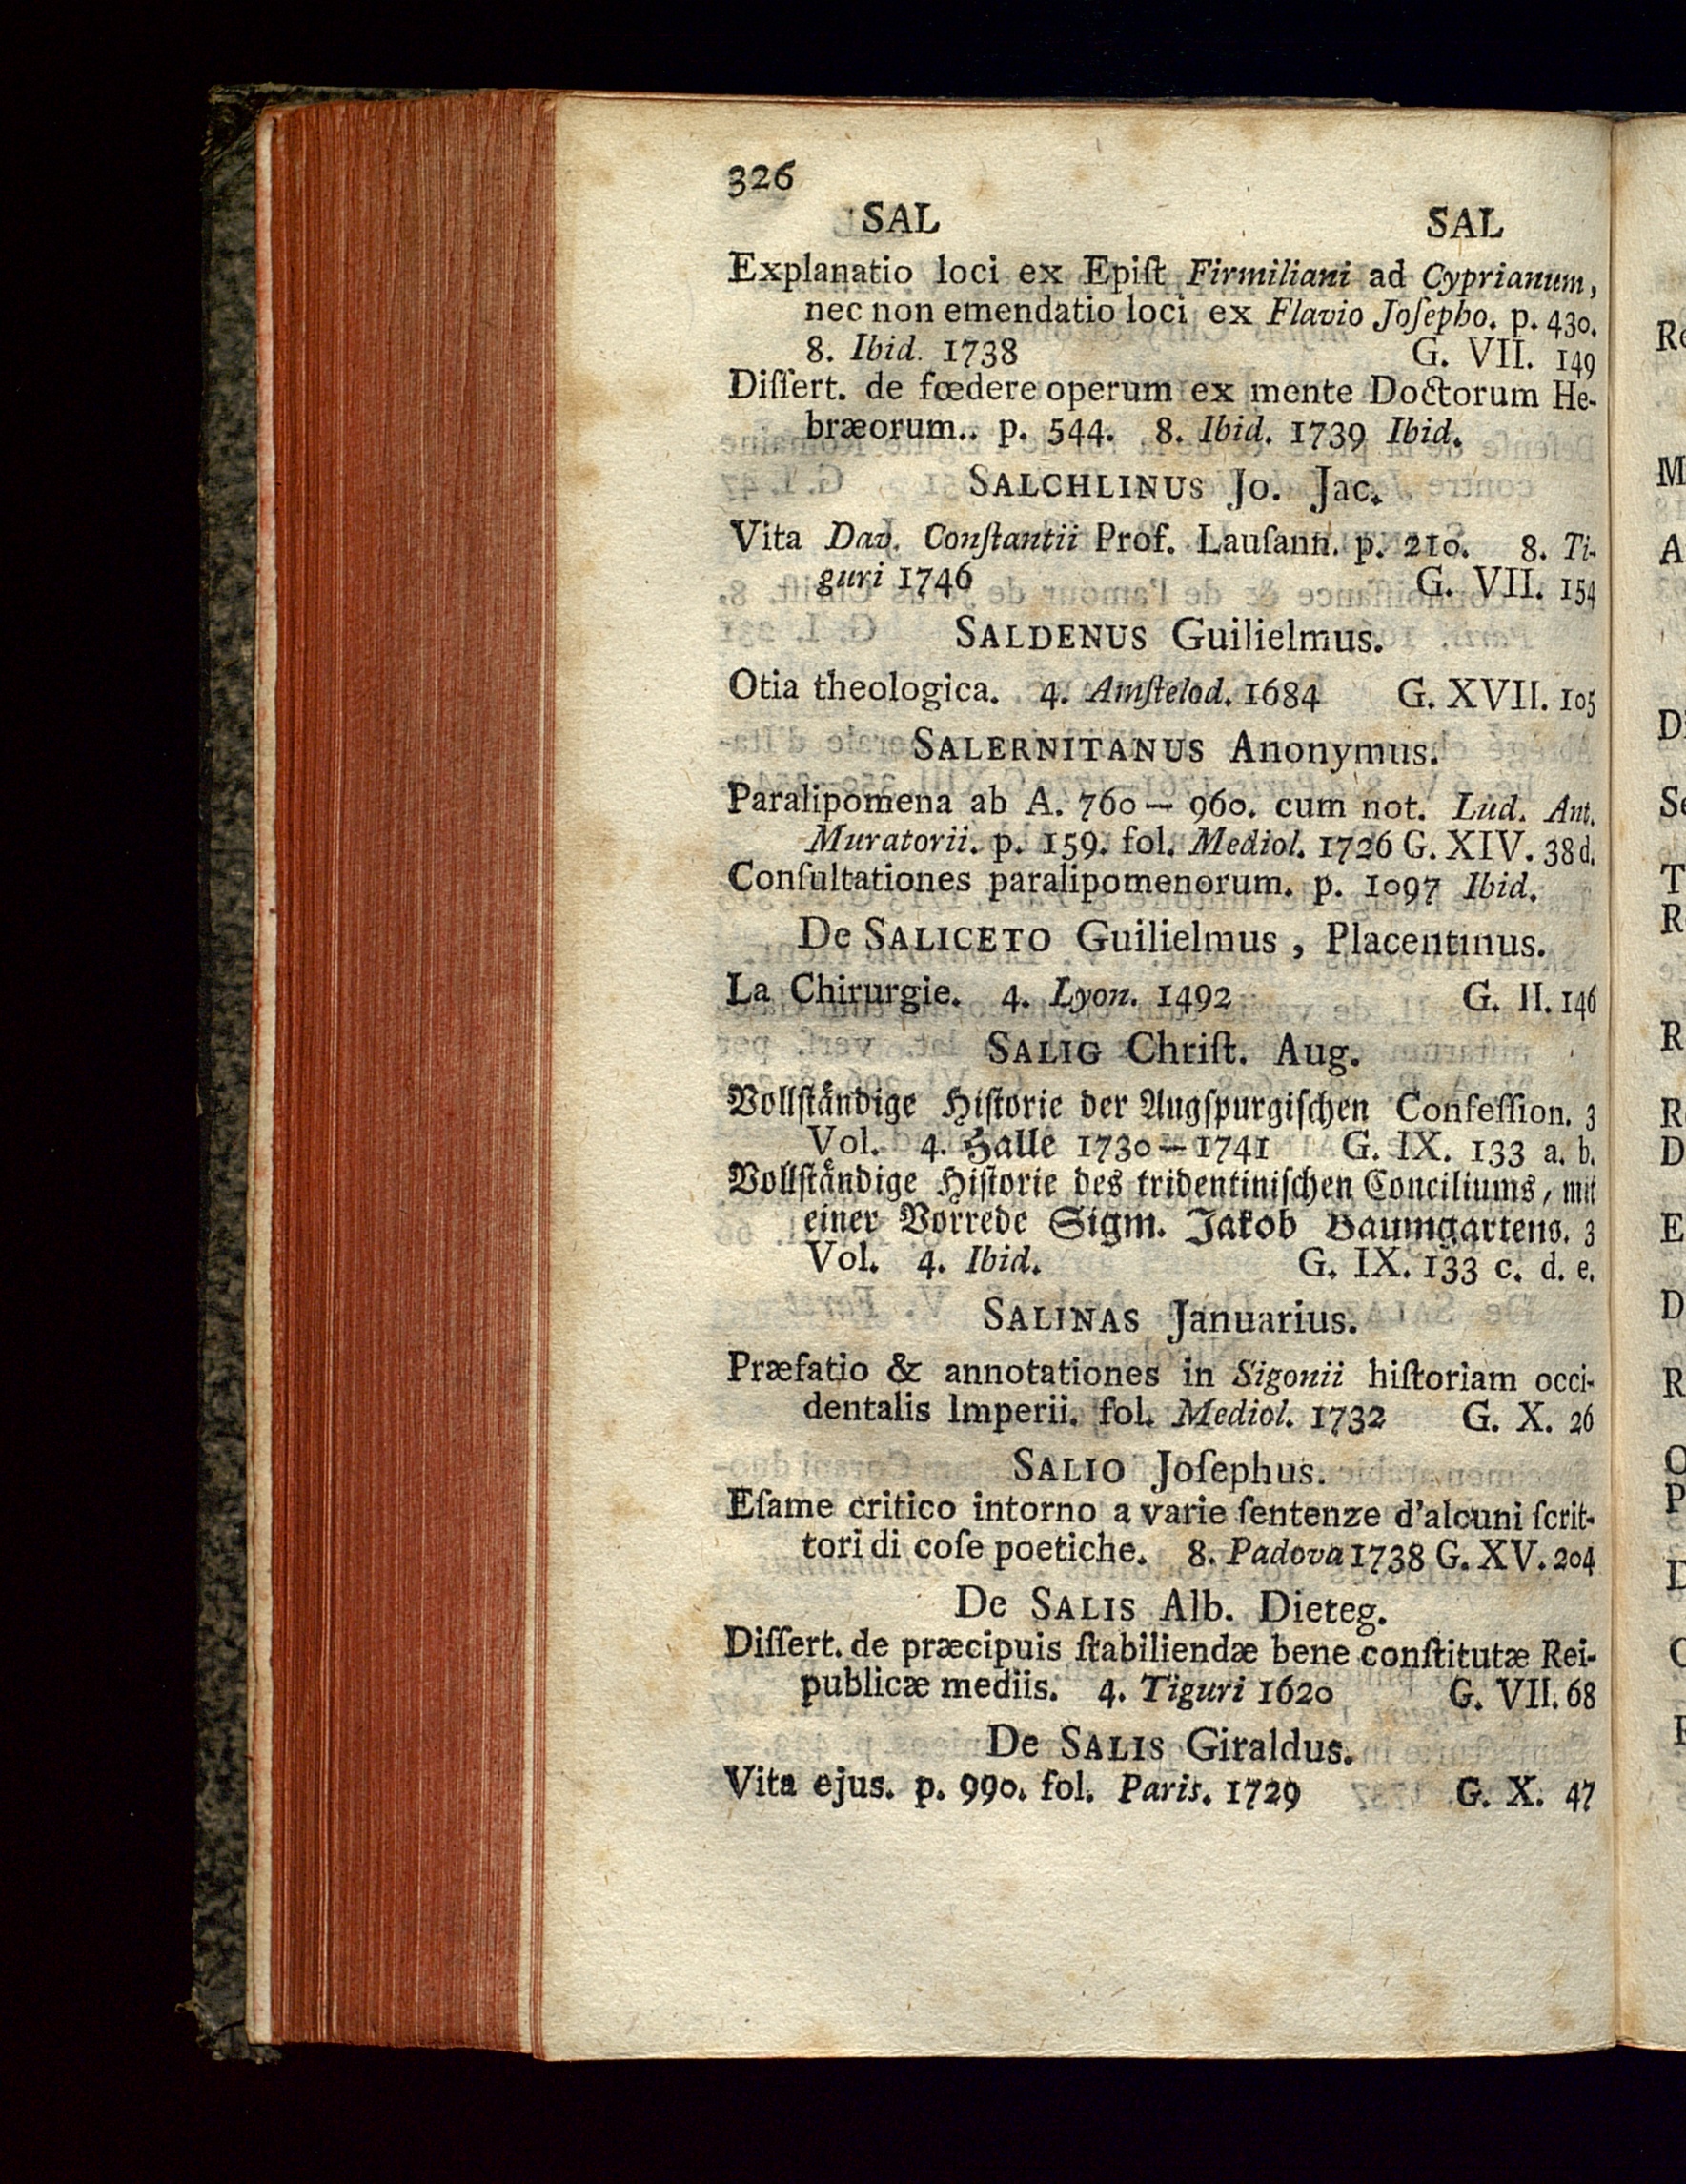 326
SAL SAL
Explanatio loci ex Epiſt Firmiliani ad Cyprianum,
nec non emendatio loci ex Flavio Joſepho. p. 430.
8. Ibid. 1738 G. VII. 149
Diſſert. de fœdere operum ex mente Doctorum He-
bræorum.. p. 544. 8. Ibid. 1739 Ibid.
SALCHLINUS Jo. Jac.
Vita Dav. Conſtantii Prof. Lauſann. p. 210. 8. Ti-
guri 1746 G. VII. 154
SALDENUS Guilielmus.
Otia theologica. 4. Amſtelod. 1684 G. XVII. 105
SALERNITANUS Anonymus.
Paralipomena ab A. 760 — 960. cum not. Lud. Ant.
Muratorii. p. 159. fol. Mediol. 1726 G. XIV. 38 d.
Conſultationes paralipomenorum. p. 1097 Ibid.
De SALICETO Guilielmus, Placentinus.
La Chirurgie. 4. Lyon. 1492 G. II. 146
SALIG Chriſt. Aug.
Vollſtändige Hiſtorie der Augſpurgiſchen Confeſſion. 3
Vol. 4. Halle 1730 — 1741 G. IX. 133 a. b.
Vollſtändige Hiſtorie des tridentiniſchen Conciliums, mit
einer Vorrede Sigm. Jakob Baumgartens. 3
Vol. 4. Ibid. G. IX. 133 c. d. e.
SALINAS Januarius.
Præfatio & annotationes in Sigonii hiſtoriam occi-
dentalis Imperii. fol. Mediol. 1732 G. X. 26
SALIO Joſephus.
Eſame critico intorno a varie ſentenze d'alcuni ſcrit-
tori di coſe poetiche. 8. Padova 1738 G. XV. 204
De SALIS Alb. Dieteg.
Diſſert. de præcipuis ſtabiliendæ bene conſtitutæ Rei-
publicæ mediis. 4. Tiguri 1620 G. VII. 68
De SALIS Giraldus.
Vita ejus. p. 990. fol. Paris. 1729 G. X. 47